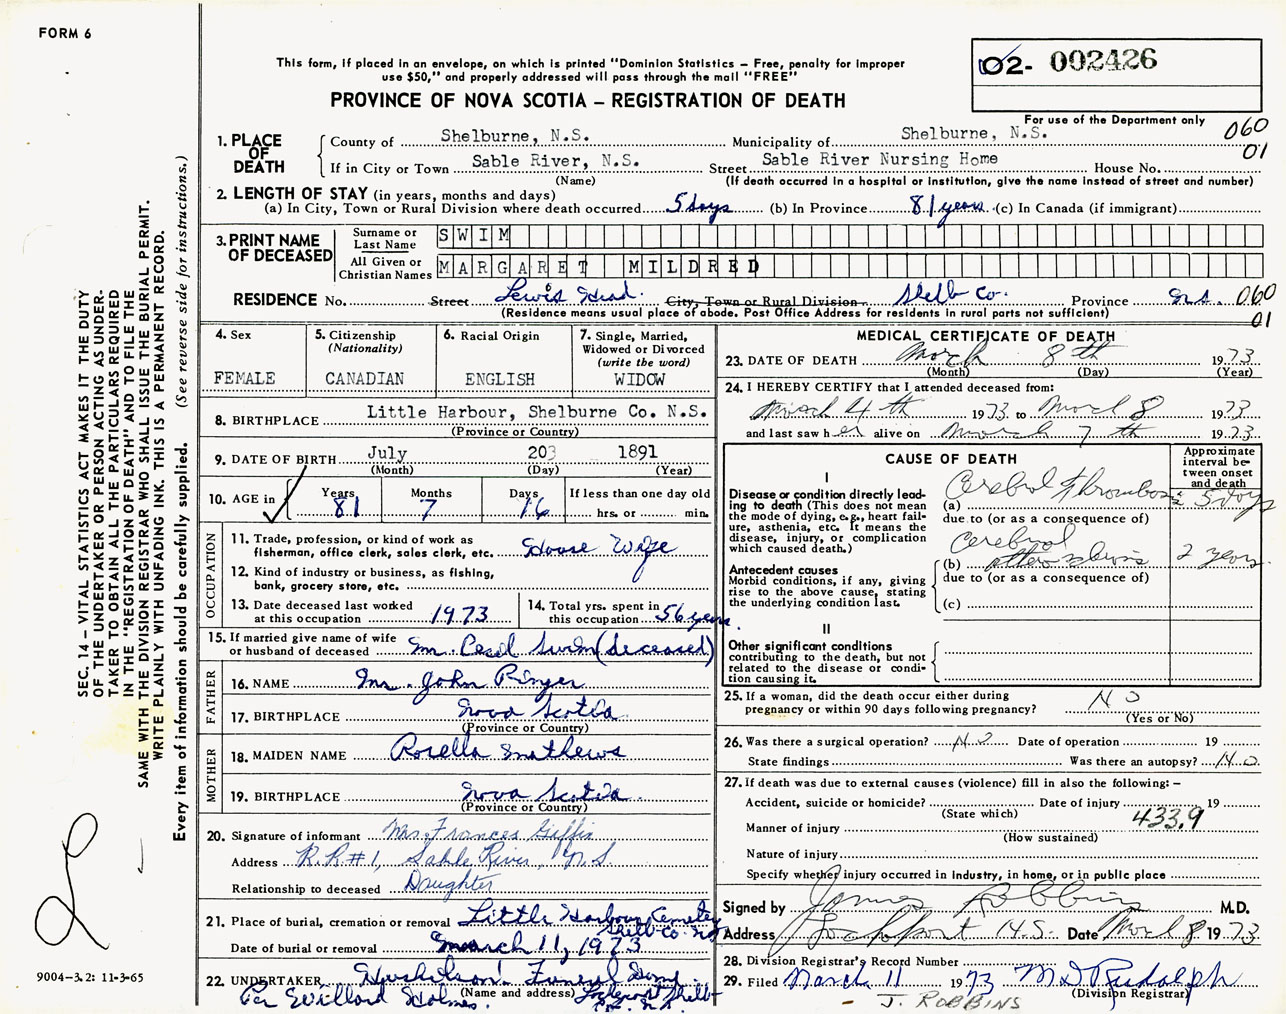 FORM 6
This form, if placed in an envelope, on which is printed "Dominion Statistics – Free, penalty for improper
use $50," and properly addressed will pass through the mail "FREE"
PROVINCE OF NOVA SCOTIA – REGISTRATION OF DEATH
02- 002426
For use of the Department only
060
01
1. PLACE OF DEATH
County of Shelburne, N.S. Municipality of Shelburne, N.S.
If in City or Town Sable River, N.S. Street Sable River Nursing Home House No.
(Name) (If death occurred in a hospital or institution, give the name instead of street and number)
2. LENGTH OF STAY (in years, months and days)
(a) In City, Town or Rural Division where death occurred 5 days (b) In Province 81 years (c) In Canada (if immigrant)
3. PRINT NAME OF DECEASED
Surname or Last Name SWIM
All Given or Christian Names MARGARET MILDRED
RESIDENCE No. Street Lewis Head. City, Town or Rural Division Shelb Co. Province N.S. 060
(Residence means usual place of abode. Post Office Address for residents in rural parts not sufficient) 01
4. Sex
FEMALE
5. Citizenship
(Nationality)
CANADIAN
6. Racial Origin
ENGLISH
7. Single, Married,
Widowed or Divorced
(write the word)
WIDOW
8. BIRTHPLACE Little Harbour, Shelburne Co. N.S.
(Province or Country)
9. DATE OF BIRTH July 203 1891
(Month) (Day) (Year)
10. AGE in
Years 81
Months 7
Days 16
If less than one day old
hrs. or min.
OCCUPATION
11. Trade, profession, or kind of work as
fisherman, office clerk, sales clerk, etc. House Wife
12. Kind of industry or business, as fishing,
bank, grocery store, etc.
13. Date deceased last worked
at this occupation 1973
14. Total yrs. spent in
this occupation 56 years.
15. If married give name of wife
or husband of deceased Mr. Cecil Swim (deceased)
FATHER
16. NAME Mr. John Ringer
17. BIRTHPLACE Nova Scotia
(Province or Country)
MOTHER
18. MAIDEN NAME Rosella Mathews
19. BIRTHPLACE Nova Scotia.
(Province or Country)
20. Signature of informant Mrs. Frances Giffin
Address R.R#1, Sable River, N.S.
Relationship to deceased Daughter
21. Place of burial, cremation or removal Little Harbour Cemetery
Shelb Co. N.S.
Date of burial or removal March 11, 1973
22. UNDERTAKER Funeral Home
(Name and address) Lockeport Shelb
Per Willard Holmes. Co. N.S.
MEDICAL CERTIFICATE OF DEATH
23. DATE OF DEATH March 8th 1973
(Month) (Day) (Year)
24. I HEREBY CERTIFY that I attended deceased from:
March 4th 1973 to March 8 1973
and last saw her alive on March 7th 1973
CAUSE OF DEATH
Approximate
interval be-
tween onset
and death
I
Disease or condition directly lead-
ing to death (This does not mean
the mode of dying, e.g., heart fail-
ure, asthenia, etc. It means the
disease, injury, or complication
which caused death.)
(a) Cerebral Thrombosis 5 days
due to (or as a consequence of)
Antecedent causes
Morbid conditions, if any, giving
rise to the above cause, stating
the underlying condition last.
(b) Cerebral 2 years.
due to (or as a consequence of)
(c)
II
Other significant conditions
contributing to the death, but not
related to the disease or condi-
tion causing it.
25. If a woman, did the death occur either during
pregnancy or within 90 days following pregnancy? NO
(Yes or No)
26. Was there a surgical operation? NO Date of operation 19
State findings Was there an autopsy? NO
27. If death was due to external causes (violence) fill in also the following: –
Accident, suicide or homicide? Date of injury 19
(State which)
433.9
Manner of injury
(How sustained)
Nature of injury
Specify whether injury occurred in industry, in home, or in public place
Signed by James Robbins M.D.
Address Lockeport N.S. Date March 8 1973
28. Division Registrar's Record Number
29. Filed March 11 1973 M D Rudolph
(Division Registrar)
- J. ROBBINS
SEC. 14 – VITAL STATISTICS ACT MAKES IT THE DUTY
OF THE UNDERTAKER OR PERSON ACTING AS UNDER-
TAKER TO OBTAIN ALL THE PARTICULARS REQUIRED
IN THE "REGISTRATION OF DEATH" AND TO FILE THE
SAME WITH THE DIVISION REGISTRAR WHO SHALL ISSUE THE BURIAL PERMIT.
WRITE PLAINLY WITH UNFADING INK. THIS IS A PERMANENT RECORD.
Every item of information should be carefully supplied. (See reverse side for instructions.)
9004-3.2: 11-3-65